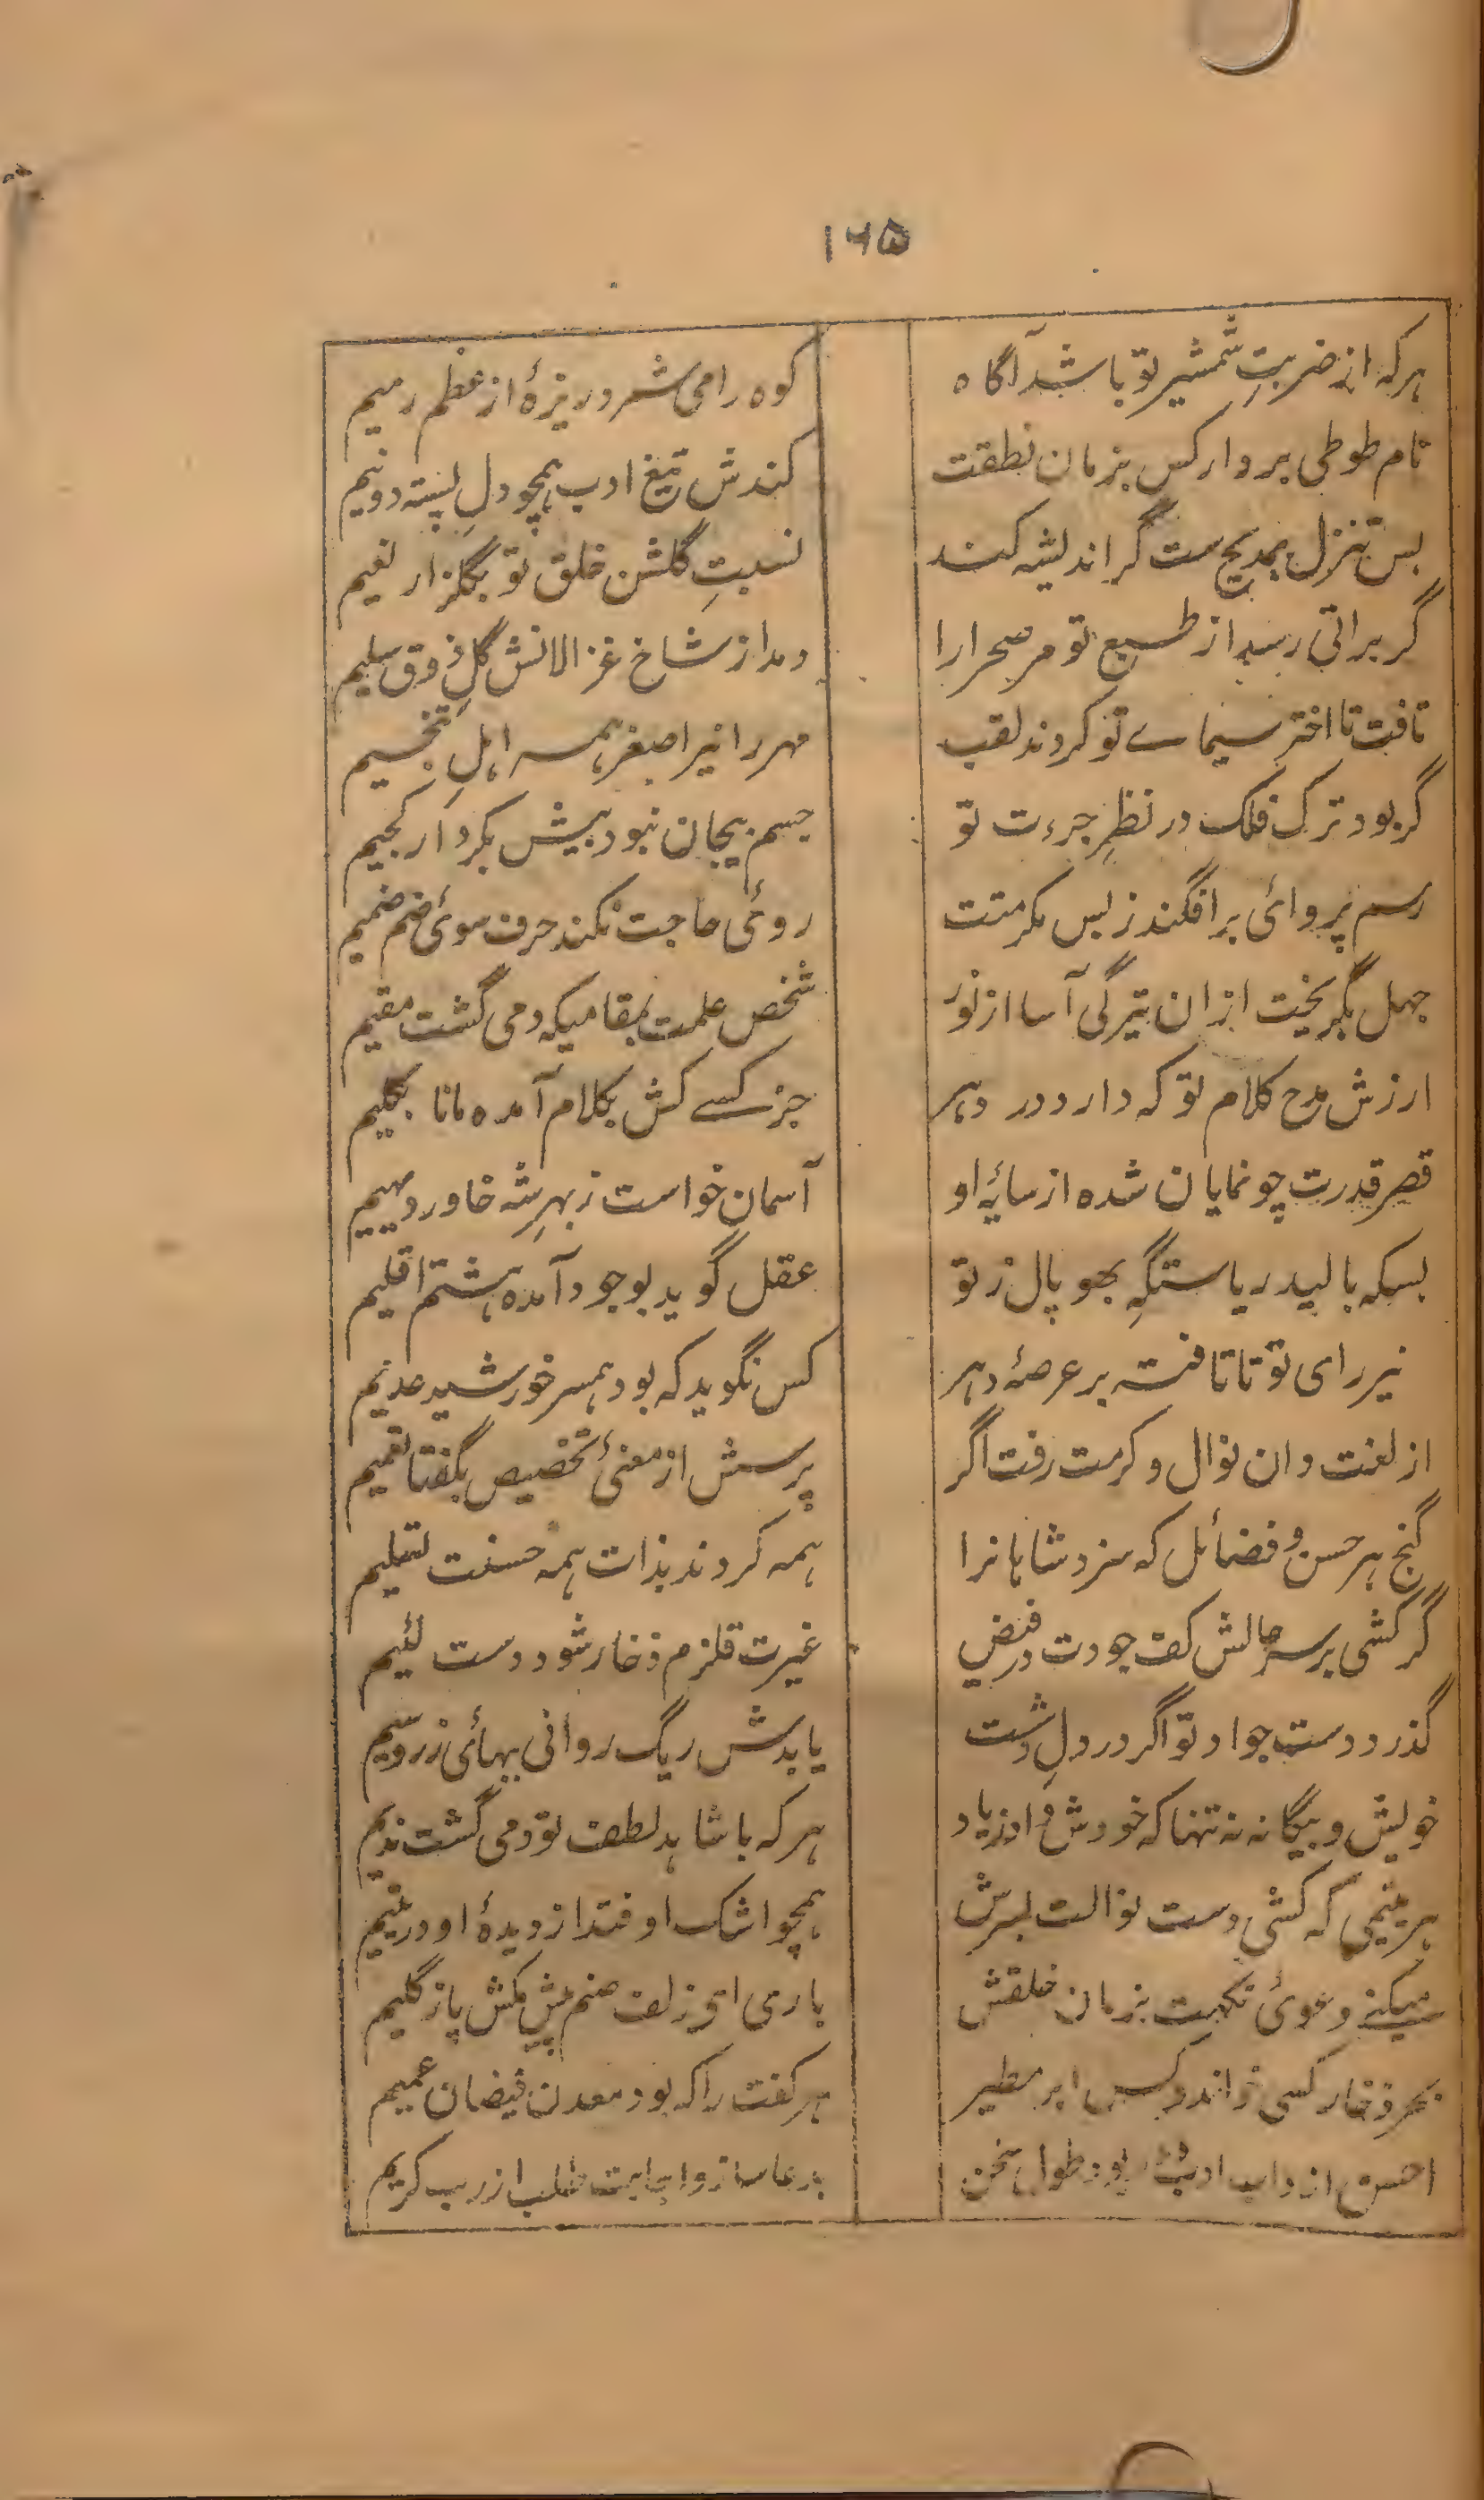 ۱۶۵
ہر کہ از ضربتِ شمشیر تو باشد آگاہ
کوہ را می شمرد ریزۂ از عظم رمیم
نام طوطی برد ار کس بزمان نطقت
کندش تیغ ادب ہمچو دلِ پستہ دو نیم
بس تنزل بمدیح ست گر اندیشہ کند
نسبتِ گلشن خلق تو بگلزار نعیم
گر براتی رسد از طبع تو مر صحرا را
دمد از شاخ غزالانش گلِ ذوق سلیم
تافت تا اختر سیمائے تو کردند لقب
مہر را نیر اصغر ہمہ اہلِ تنجیم
گر بود ترک فلک در نظرِ جرءت تو
جسم بیجان نبود بیش بکردار لجیم
رسم پروائی برافگند ز بس مکرمتت
روئی حاجت نکند حرف سوئ ضم ضمیم
جہل بگریخت ازان تیرگی آسا از نور
شخص علمت بمقامیکہ دمی گشت مقیم
ارزش مدح کلام تو کہ دارد در دہر
جز کسے کش بکلام آمدہ مانا بکلیم
قصر قدرت چو نمایان شدہ از سایۂ او
آسمان خواست ز بہر شہ خاور دیہیم
بسکہ بالید ریاستگہِ بھوپال ز تو
عقل گوید بوجود آمدہ ہشتم اقلیم
نیر رای تو تا تافتہ بر عرصۂ دہر
کس نگوید کہ بود ہمسر خورشید عدیم
از لغت دان نوال و کرمت رفت اگر
پرسش از معنئ تخصیص بگفتا تعمیم
گنج ہر حسن و فضائل کہ سزد شاہانرا
ہمہ کردند بذات ہمہ حسنت تسلیم
گر کشی بر سر حالش کف جودت در فیض
غیرت قلزم ذخار شود دست لئیم
گذرد دست جواد تو اگر در دلِ دشت
یابدش ریگ روانی بہائی زر و سیم
خویش و بیگانہ نہ تنہا کہ خودش از یاد
ہر کہ با شاہد لطف تو دمی گشت ندیم
ہر یتیمی کہ کشی دست نوالت بسرش
ہمچو اشک اوفتد از دیدۂ او در یتیم
میکنے دعوئ نکہت بزمان خلقش
باری ای زلف صنم بیش مکش پا ز گلیم
بحر ذخار کسی خواند و کس ابر مطیر
ہر کفت را کہ بود معدن فیضان عمیم
احسن از داب ادب بود طول سخن
بدعا ساز و اجابت طلب از رب کریم